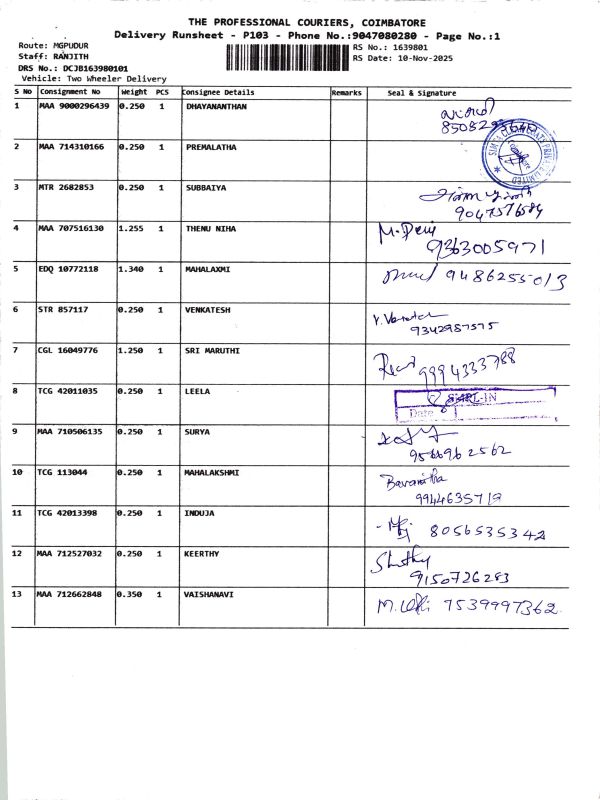 THE PROFESSIONAL COURIERS, COIMBATORE
Delivery Runsheet - P103 - Phone No.:9047080280 - Page No.:1
Route: MGPUDUR
RS No.: 1639801
Staff: RANJITH
RS Date: 10-Nov-2025
DRS No.: DCJB163980101
Vehicle: Two Wheeler Delivery
S No Consignment No Weight PCS Consignee Details Remarks Seal & Signature
1 MAA 9000296439 0.250 1 DHAYANANTHAN
2 MAA 714310166 0.250 1 PREMALATHA
3 MTR 2682853 0.250 1 SUBBAIYA
9047576584
4 MAA 707516130 1.255 1 THENU NIHA M. Devi
9363005971
5 EDQ 10772118 1.340 1 MAHALAXMI 9486255013
6 STR 857117 0.250 1 VENKATESH
9342987575
7 CGL 16049776 1.250 1 SRI MARUTHI 9994333788
8 TCG 42011035 0.250 1 LEELA
Date
9 MAA 710506135 0.250 1 SURYA
9566962562
10 TCG 113044 0.250 1 MAHALAKSHMI
9944635719
11 TCG 42013398 0.250 1 INDUJA 8056535342
12 MAA 712527032 0.250 1 KEERTHY
9150726283
13 MAA 712662848 0.350 1 VAISHANAVI 7539997362